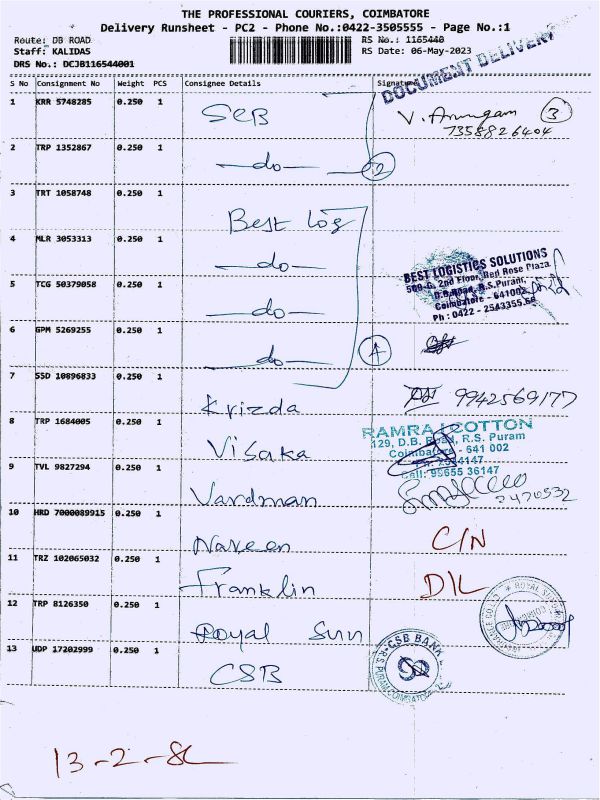 THE PROFESSIONAL COURIERS, COIMBATORE
Delivery Runsheet - PC2 - Phone No.:0422-3505555 - Page No.:1
Route: DB ROAD RS No.: 1165440
Staff: KALIDAS RS Date: 06-May-2023
DRS No.: DCJB116544001
DOCUMENT DELIVERY
S No Consignment No Weight PCS Consignee Details Signature
1 KRR 5748285 0.250 1 SCB V. Arumugam 3
7358826404
2 TRP 1352867 0.250 1 -do- 2
3 TRT 1058748 0.250 1 Best Log
4 MLR 3053313 0.250 1 -do-
BEST LOGISTICS SOLUTIONS
509-C, 2nd Floor, Red Rose Plaza
D.B.Road, R.S.Puram,
Coimbatore - 641002
Ph : 0422 - 2543355,66
5 TCG 50379058 0.250 1 -do-
6 GPM 5269255 0.250 1 -do- 4
7 SSD 10896833 0.250 1 Krizda 9942569177
8 TRP 1684005 0.250 1 Visaka
RAMRAJ COTTON
129, D.B. Road, R.S. Puram
Coimbatore - 641 002
Call: 95655 36147
9 TVL 9827294 0.250 1 Vardman 2476532
10 HRD 7000089915 0.250 1 Naveen C/N
11 TRZ 102065032 0.250 1 Franklin D/L
12 TRP 8126350 0.250 1 Royal Sun
13 UDP 17202999 0.250 1 CSB
CSB BANK
R.S.PURAM, COIMBATORE
13-2-